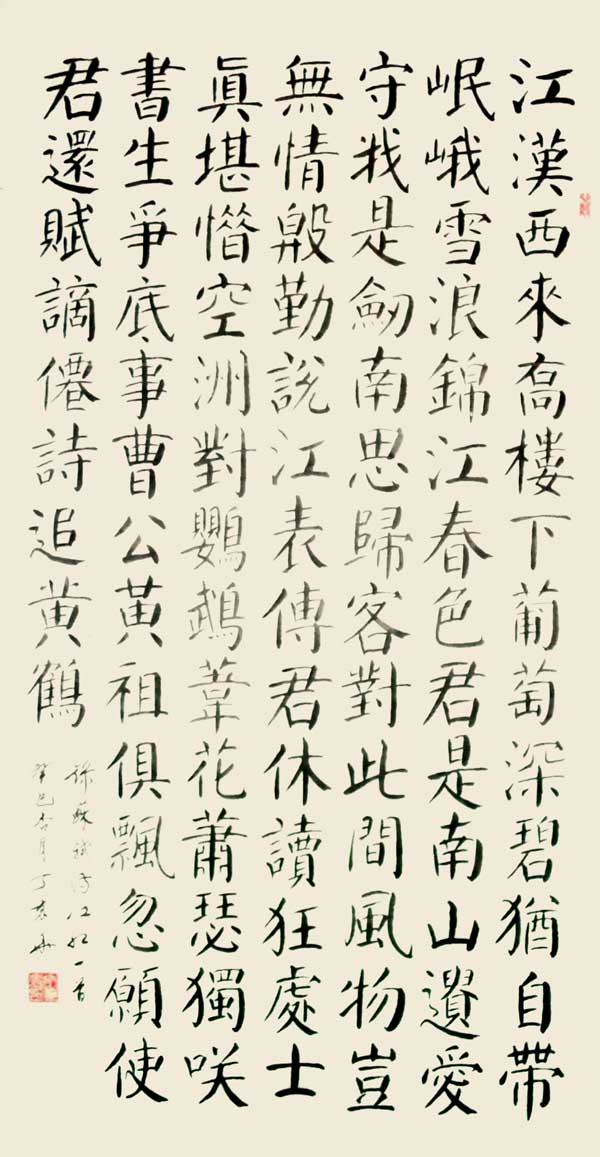 江漢西來高樓下葡萄深碧猶自帶
岷峨雪浪錦江春色君是南山遺愛
守我是劒南思歸客對此間風物豈
無情殷勤說江表傳君休讀狂處士
眞堪憯空洲對鸚鵡葦花蕭瑟獨咲
書生爭底事曹公黃祖俱飄忽願使
君還賦謫僊詩追黃鶴
蘇軾江紅一首
癸巳杏月丁